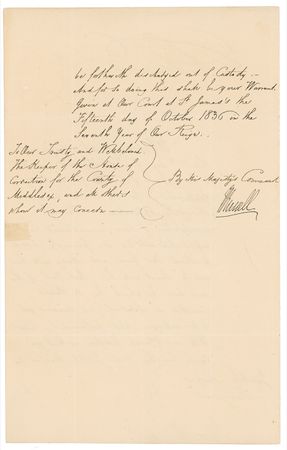 be forthwith discharged out of Custody —
And for so doing this shall be your Warrant.
Given at Our Court at St James's the
Fifteenth day of October 1836 in the
Seventh Year of Our Reign. —
To Our Trusty and Welbeloved
The Keeper of the House of
Correction for the County of
Middlesex, and all others
whom it may concern —
By His Majesty's Command
J Russell